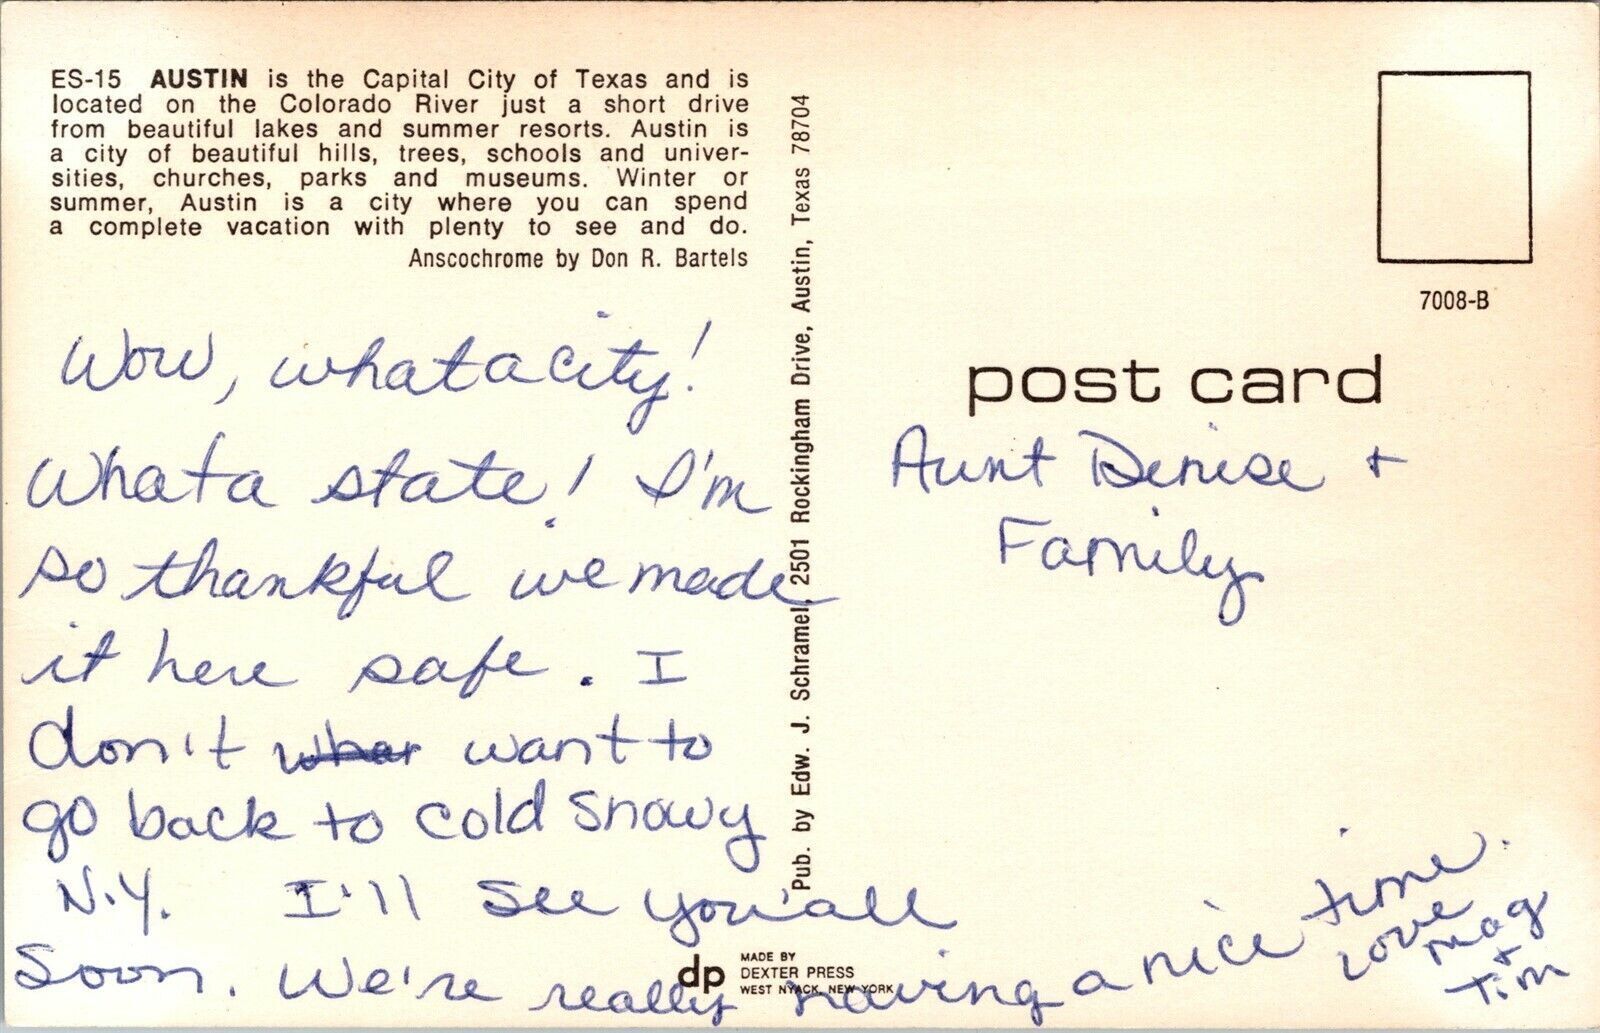 ES-15 AUSTIN is the Capital City of Texas and is
located on the Colorado River just a short drive
from beautiful lakes and summer resorts. Austin is
a city of beautiful hills, trees, schools and univer-
sities, churches, parks and museums. Winter or
summer, Austin is a city where you can spend
a complete vacation with plenty to see and do.
Anscochrome by Don R. Bartels
Wow, what a city!
What a state! I'm
so thankful we made
it here safe. I
don't want to
go back to cold snowy
N.Y. I'll see you'all
Soon. We're really having a nice time.
Love
Mag
+
Tim
Pub. by Edw. J. Schramel, 2501 Rockingham Drive, Austin, Texas 78704
dp
MADE BY
DEXTER PRESS
WEST NYACK, NEW YORK
7008-B
post card
Aunt Denise +
Family